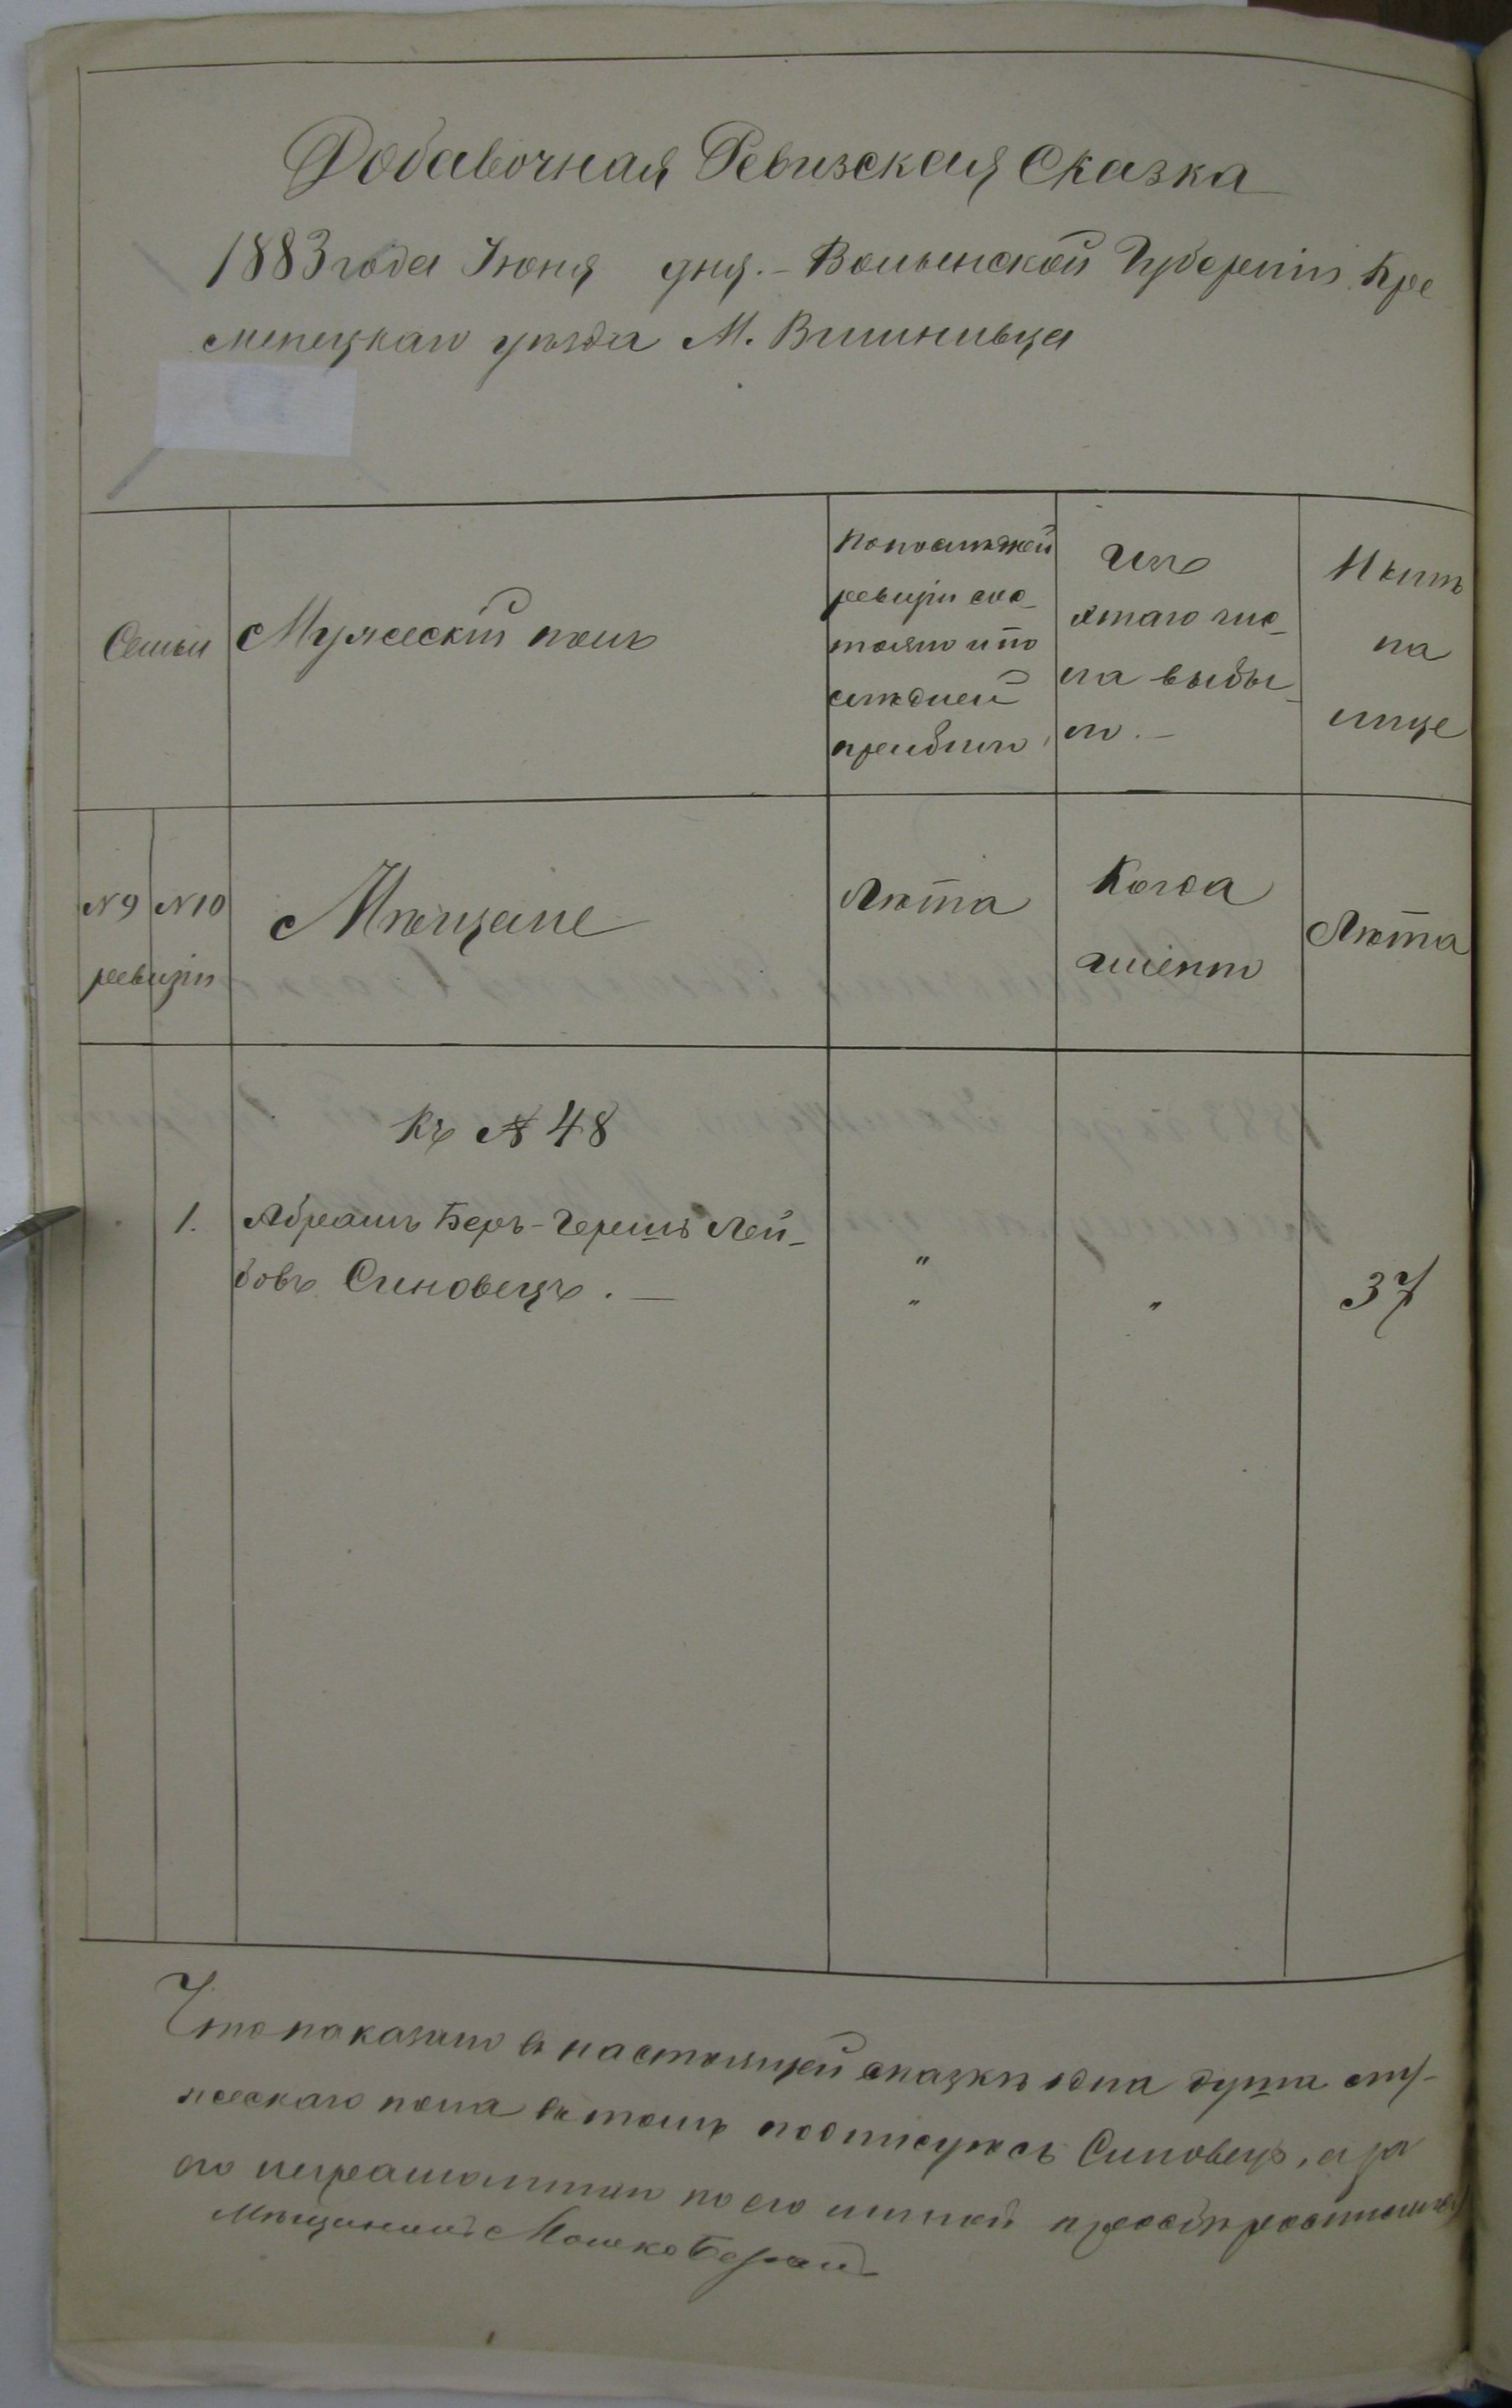 Добавочная Ревизская Сказка
1883 года Іюня дня. – Волынской Губерніи Кре
менецкаго уѣзда М. Вишнивца
Семьи
Мужескій полъ
По послѣдней
ревизіи сос-
тояло и по
слѣдней
прибыло
Изъ
этаго чис-
ла выбы-
ло. –
Нынѣ
на
лице
N 9
N 10
ревизіи
Мѣщане
Лѣта
Когда
именно
Лѣта
Къ № 48
1.
Абрамъ Беръ-Гершъ Лей-
бовъ Синовецъ. —
"
"
"
37
Что показано въ настоящей сказкѣ одна душа му-
жескаго пола въ томъ подписуюсь Синовецъ, а за
его неграмотнаго по его личной просьбѣ росписался
Мѣщанинъ Мошко